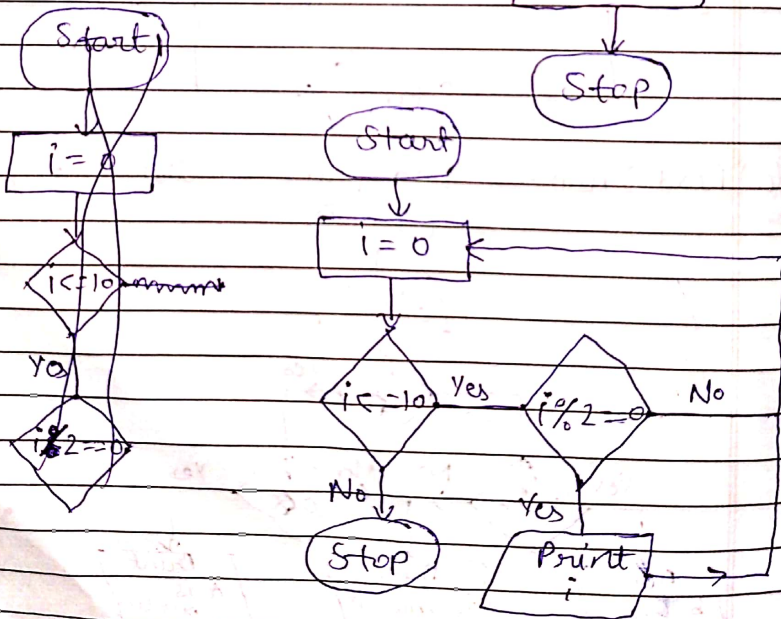 Start
i = 0
i<=10
Yes
i%2==0
Stop
Start
i = 0
i<=10
Yes
i%2==0
No
No
Stop
Yes
Print
i